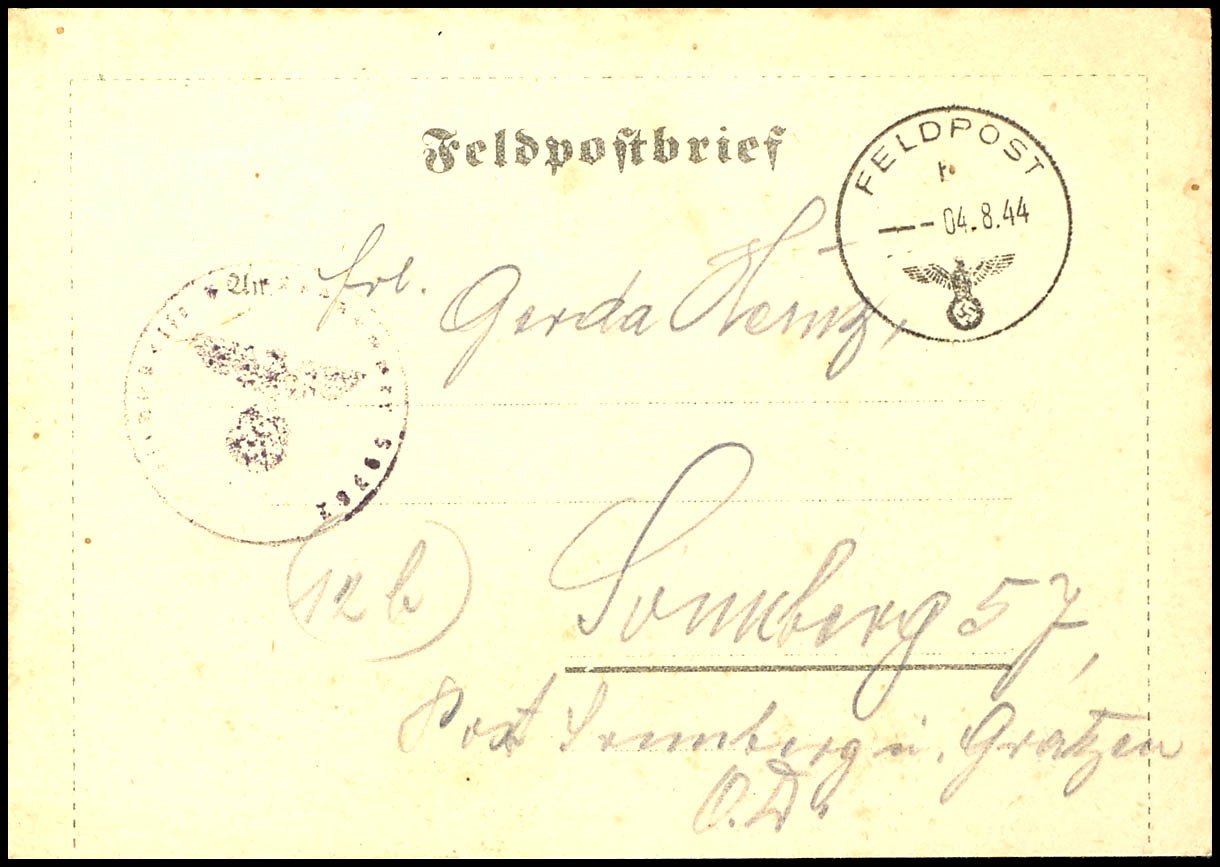 Feldpostbrief
FELDPOST
04.8.44
Frl.
Gerda
(12b)
Sonnberg 57,
Post Sonnberg ü. Gratzen
O.D.